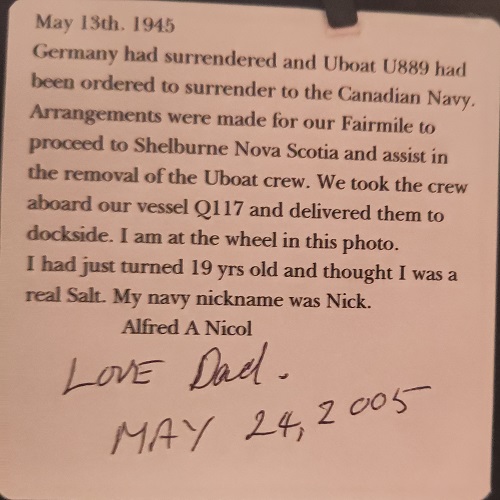 May 13th. 1945
Germany had surrendered and Uboat U889 had
been ordered to surrender to the Canadian Navy.
Arrangements were made for our Fairmile to
proceed to Shelburne Nova Scotia and assist in
the removal of the Uboat crew. We took the crew
aboard our vessel Q117 and delivered them to
dockside. I am at the wheel in this photo.
I had just turned 19 yrs old and thought I was a
real Salt. My navy nickname was Nick.
Alfred A Nicol
LOVE Dad.
MAY 24, 2005